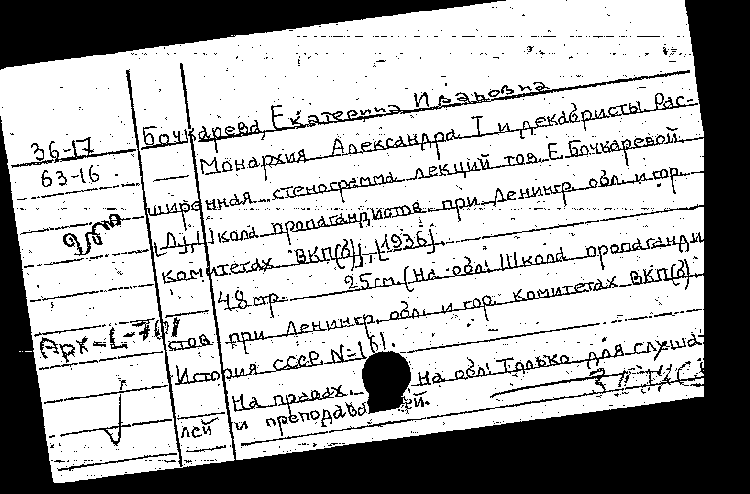 Бочкарева, Екатерина Ивановна
36-17
Монархия Александра I и декабристы Рас-
63-16
ширенная стенограмма лекций тов. Е. Бочкаревой.
[Л], Школа пропагандистов при Ленингр. обл. и гор.
комитетах ВКП(б), [1936].
48 стр. 25 см. (На обл: Школа пропаганди
Арх-L-701
стов при Ленингр. обл. и гор. комитетах ВКП(б)
История СССР. N=161.
На правах. На обл: Только для слуша-
лей и преподава ей.